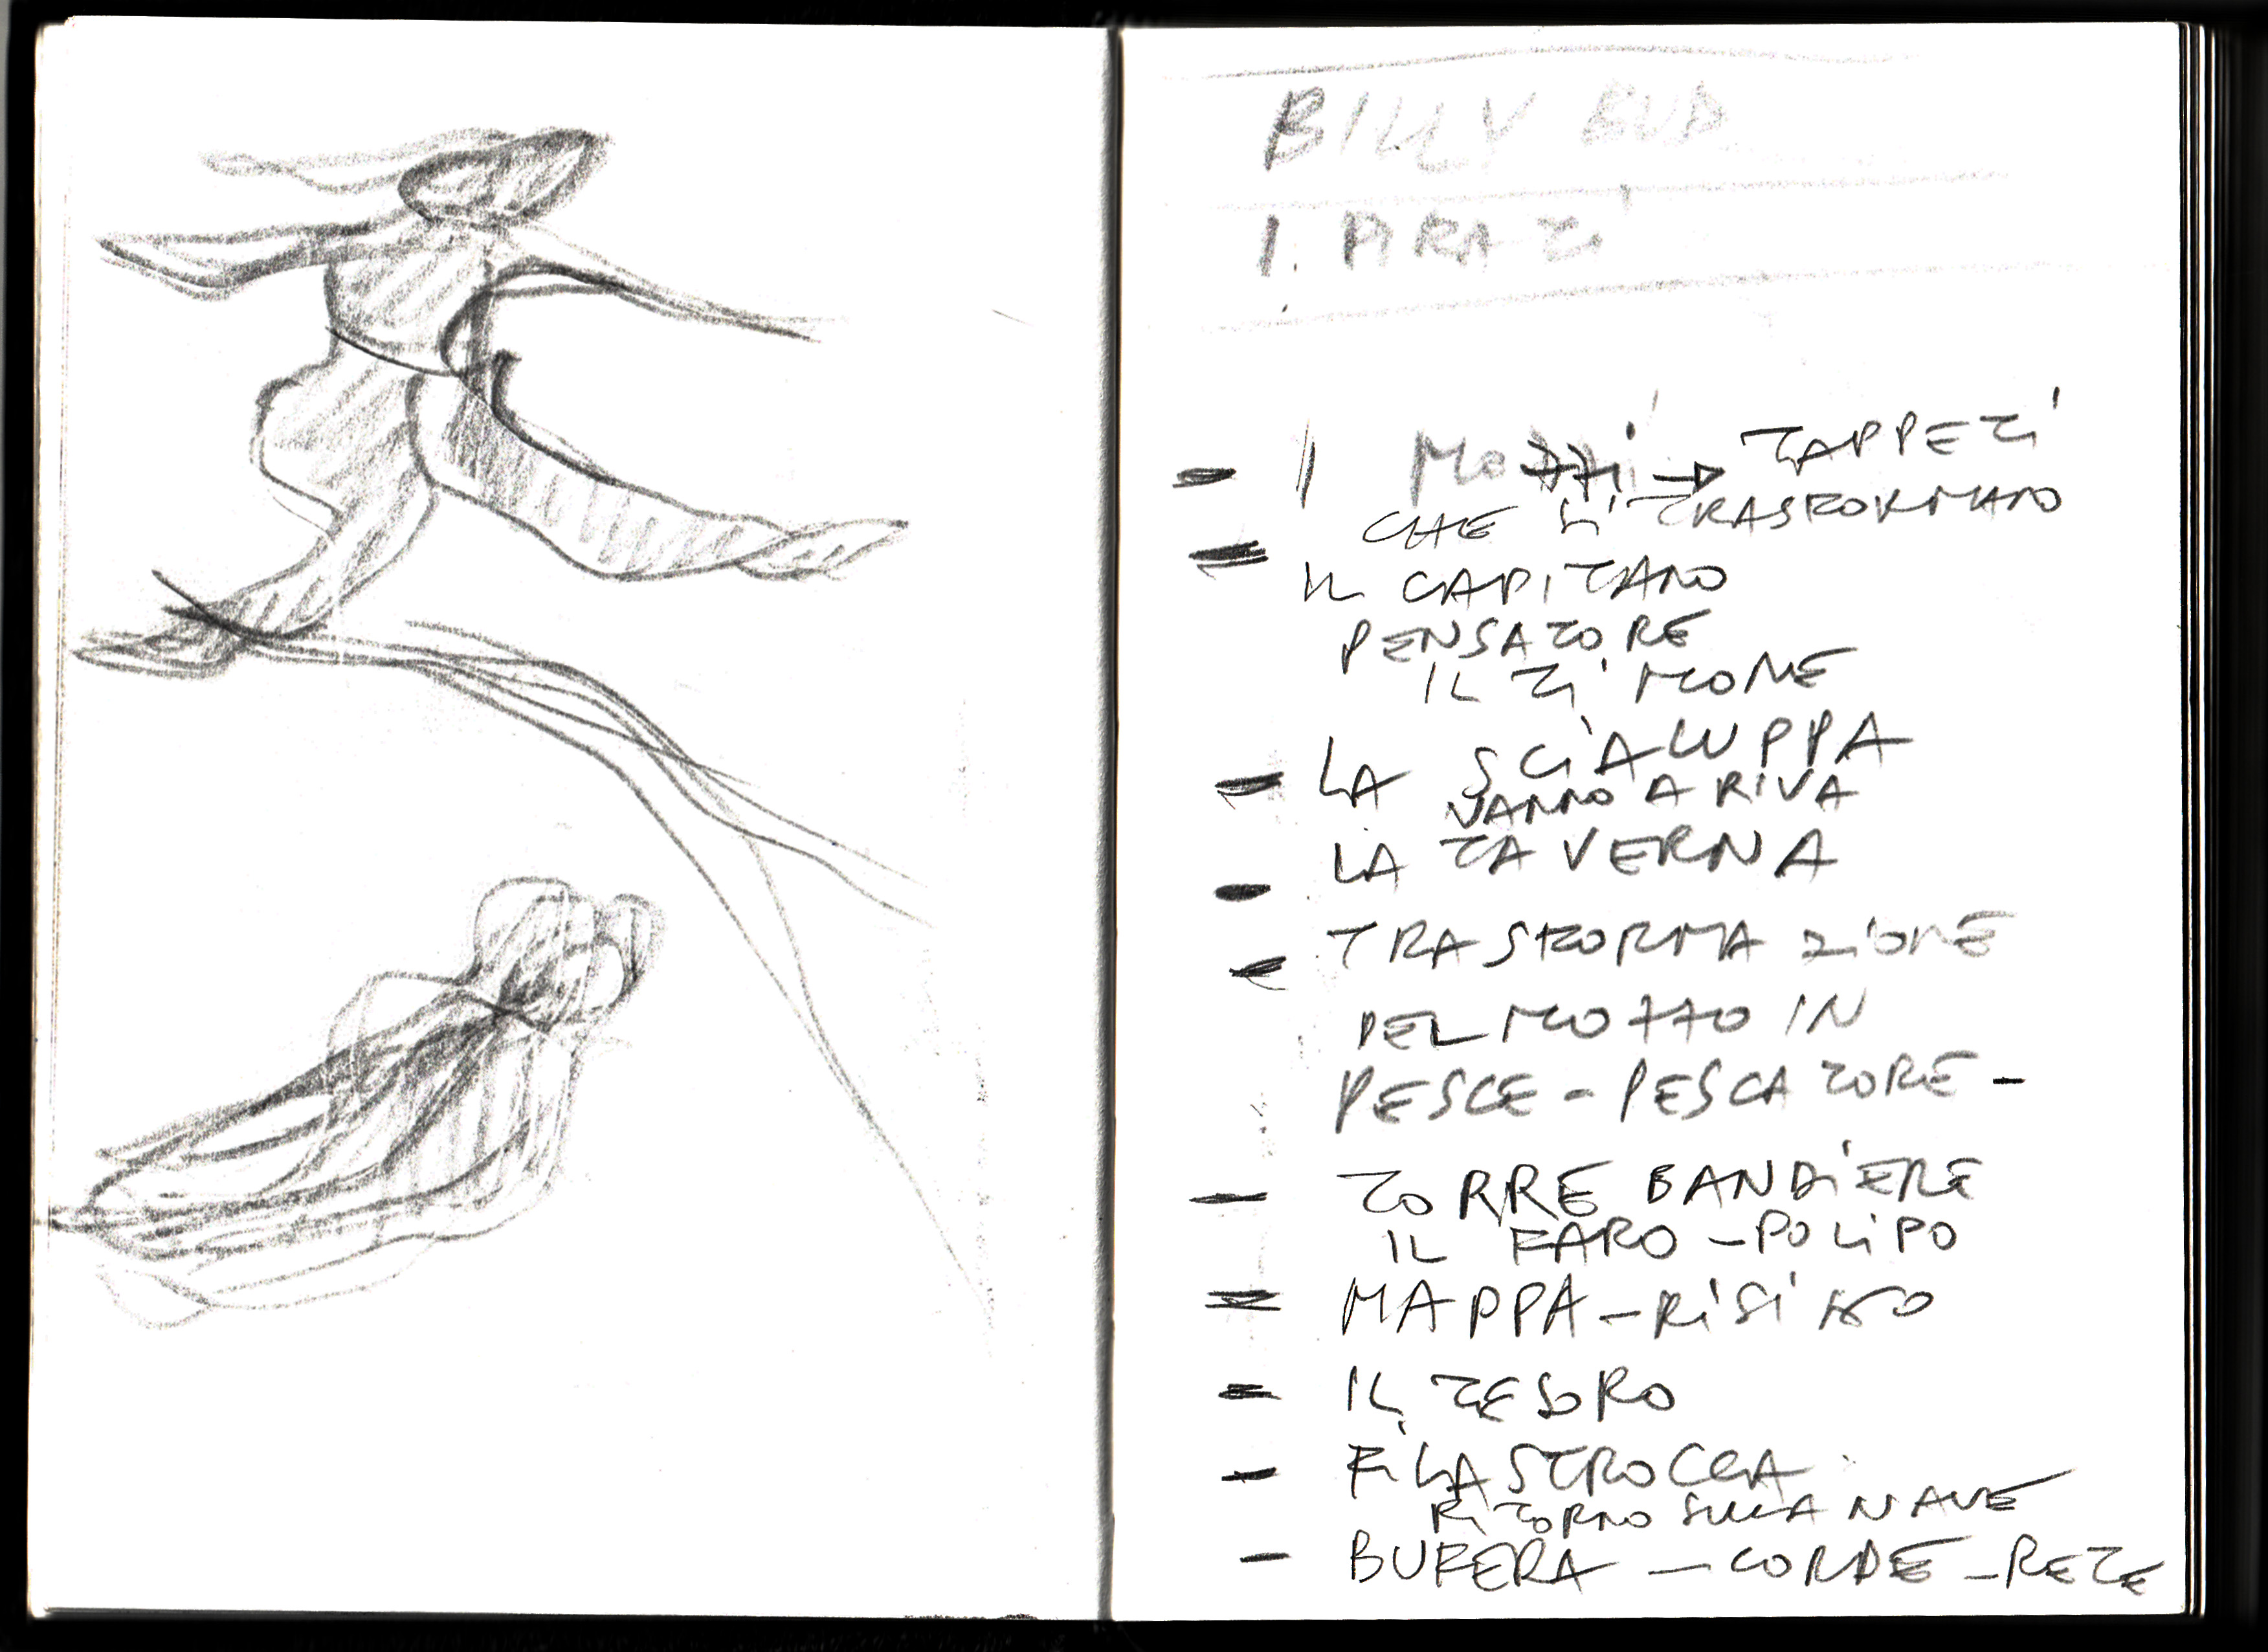 BILLY BUD
I. PIRATI
- I MOZZI → TAPPETI
CHE SI TRASFORMANO
- IL CAPITANO
PENSATORE
IL TIMONE
- LA SCIALUPPA
VANNO A RIVA
- LA TAVERNA
- TRASFORMAZIONE
DEL MOZZO IN
PESCE - PESCATORE -
- TORRE BANDIERE
IL FARO - POLIPO
- MAPPA - RISIKO
- IL TESORO
- FILASTROCCA
RITORNO SULLA NAVE
- BUFERA - CORDE - RETE